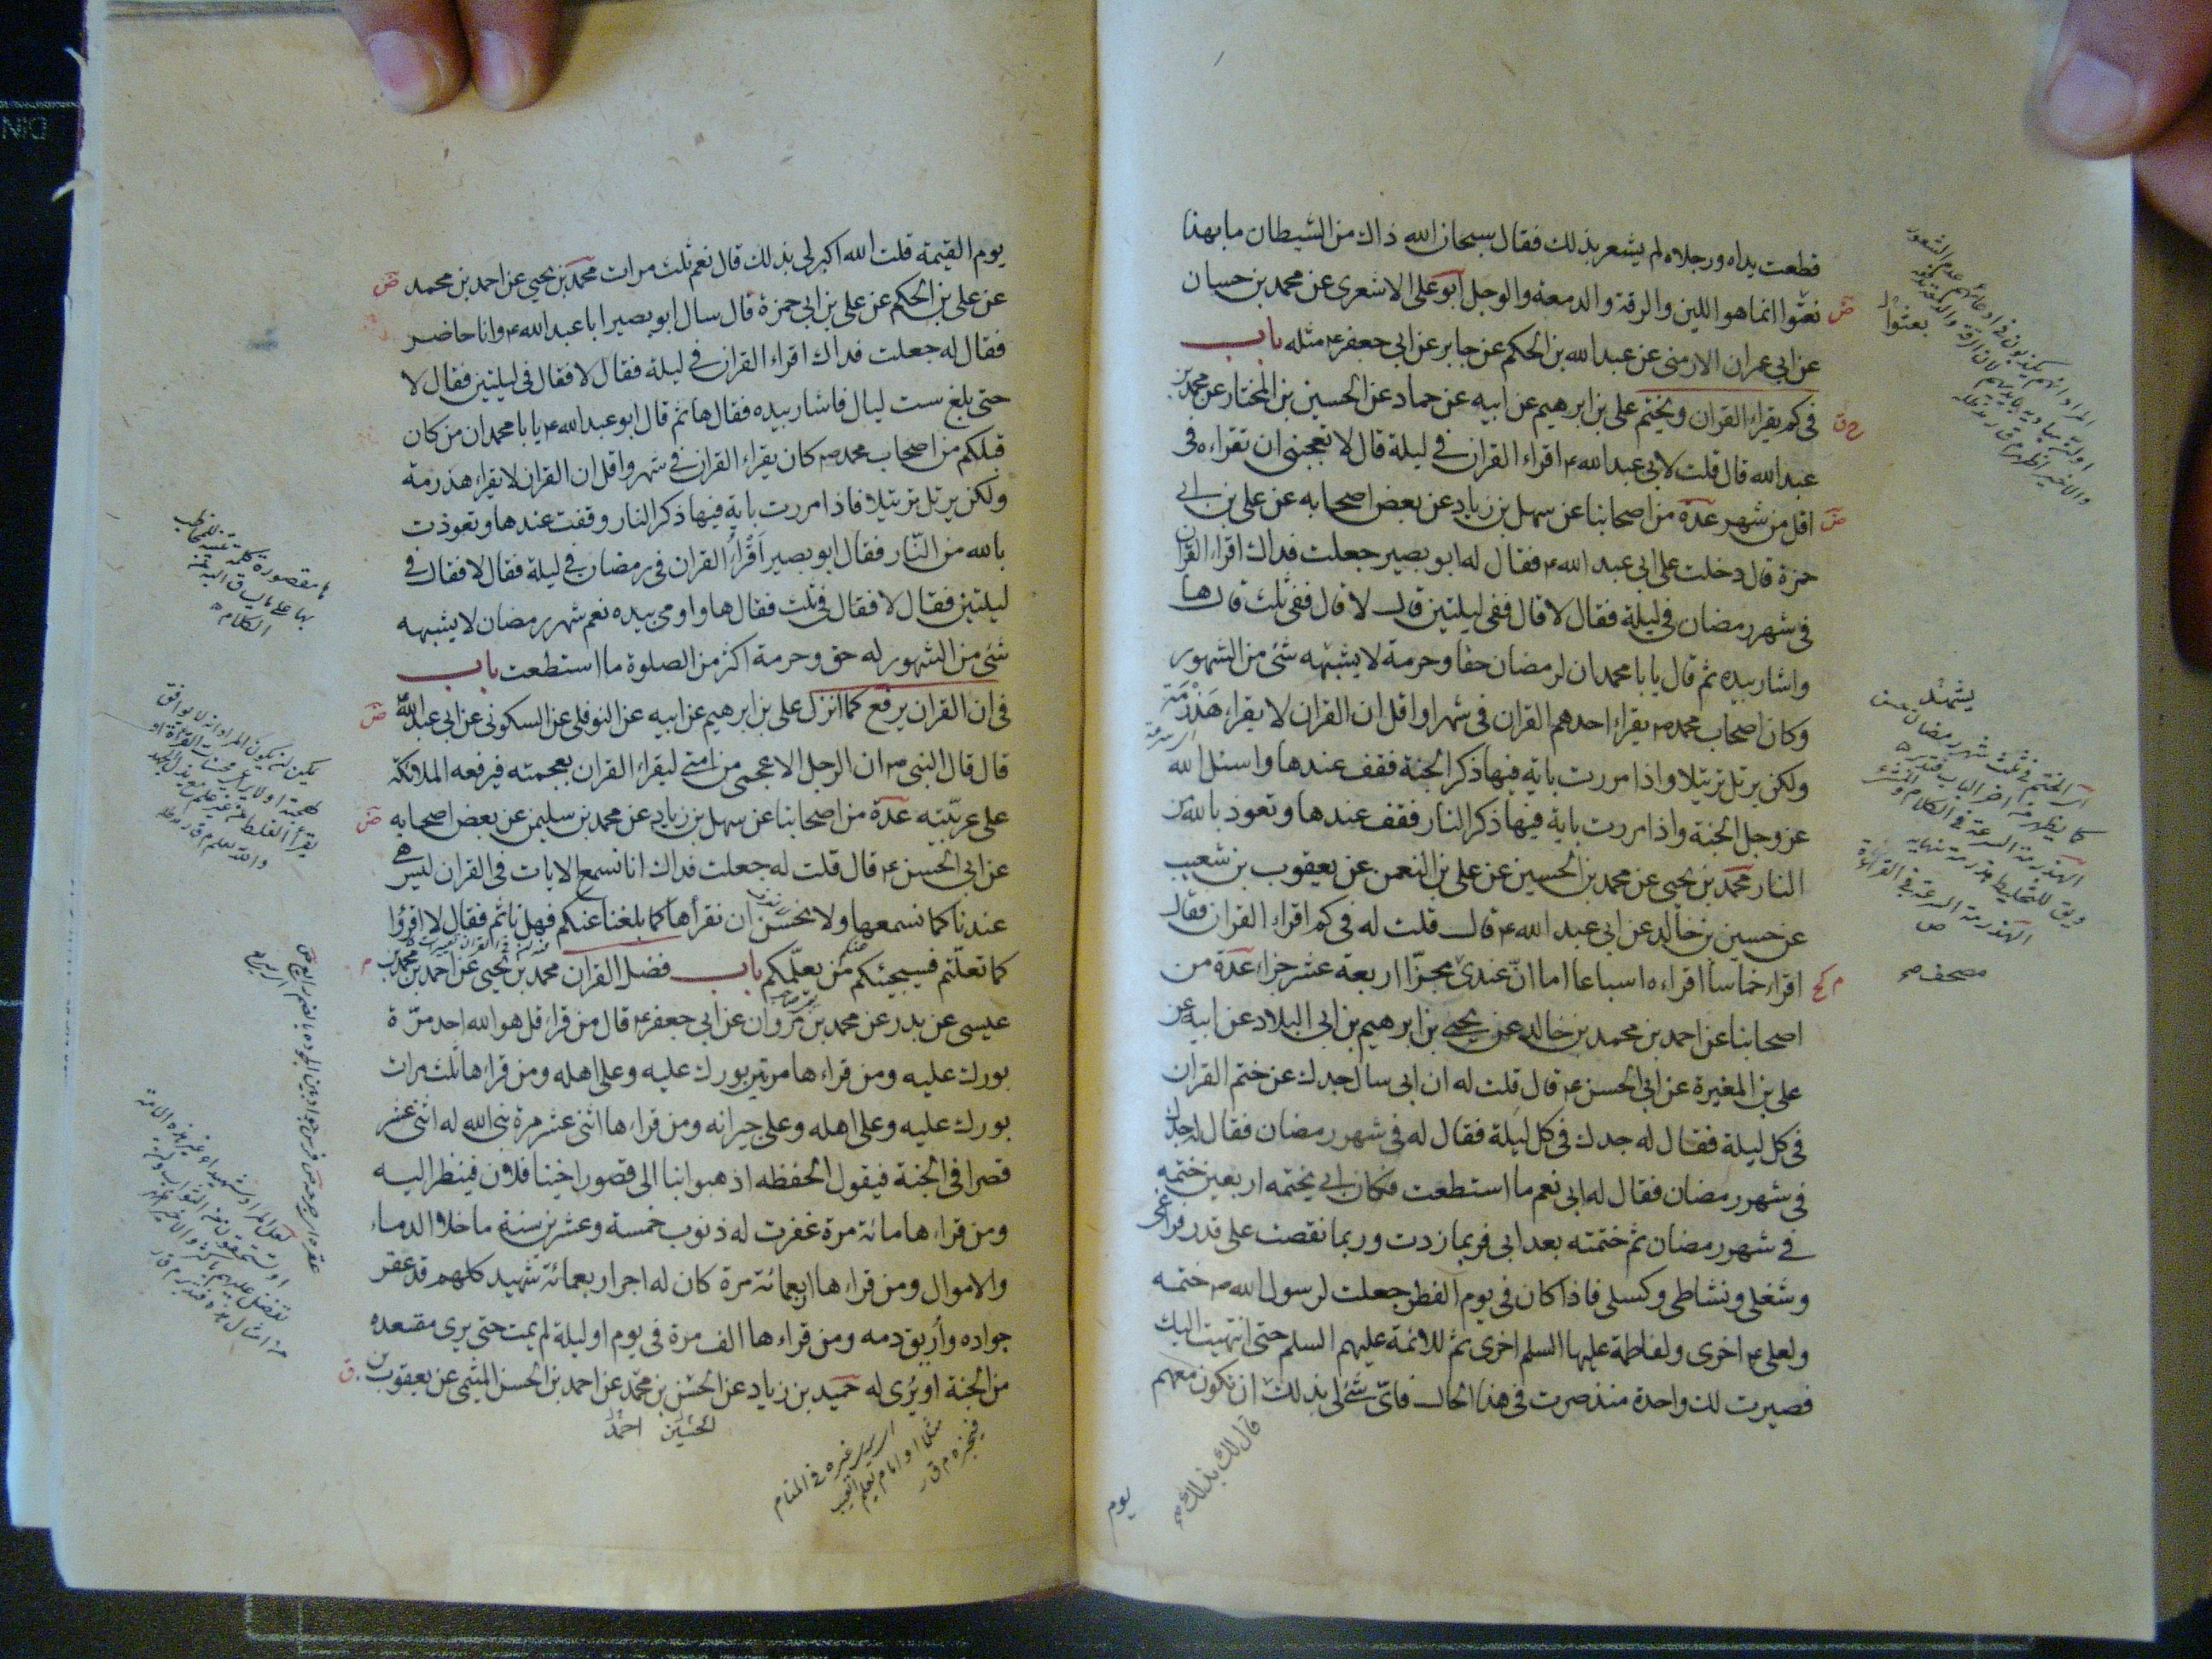 قطعت يداه ورجلاه لم يشعر بذلك فقال سبحان الله ذاك من الشيطان ما بهذا
نعتوا انما هو اللين والرقة والدمعة والوجل ابو علي الاشعري عن محمد بن حسان
عن ابي عمران الارمني عن عبد الله بن الحكم عن جابر عن ابي جعفر ع مثله باب
في كم يقراء القران ويختم علي بن ابرهيم عن ابيه عن حماد عن الحسين بن المختار عن محمد بن
عبد الله قال قلت لابي عبد الله ع اقراء القران في ليلة قال لا تعجبني ان تقراءه في
اقل من شهر عدة من اصحابنا عن سهل بن زياد عن بعض اصحابه عن علي بن ابي
حمزة قال دخلت على ابي عبد الله ع فقال له ابو بصير جعلت فداك اقراء القران
في شهر رمضان في ليلة فقال لا قال ففي ليلتين قال لا قال ففي ثلث قال ها
واشار بيده ثم قال يا با محمد ان لرمضان حقا وحرمة لا يشبهه شئ من الشهور
وكان اصحاب محمد ص يقراء احدهم القران في شهر او اقل ان القران لا يقراء هَذْرَمَة
ولكن يرتل ترتيلا واذا مررت باية فيها ذكر الجنة فقف عندها واسئل الله
عز وجل الجنة واذا مررت باية فيها ذكر النار فقف عندها وتعوذ بالله من
النار محمد بن يحيى عن محمد بن الحسين عن علي بن النعمن عن يعقوب بن شعيب
عن حسين بن خالد عن ابي عبد الله ع قال قلت له في كم اقراء القران فقال
اقراءه اخماسا اقراءه اسباعا اما ان عندي مجزا اربعة عشر جزاء عدة من
اصحابنا عن احمد بن محمد بن خالد عن يحيى بن ابرهيم بن ابي البلاد عن ابيه عن
علي بن المغيرة عن ابي الحسن ع قال قلت له ان ابي سال جدك عن ختم القران
في كل ليلة فقال له جدك في كل ليلة فقال له في شهر رمضان فقال له جدك
في شهر رمضان فقال له ابي نعم ما استطعت فكان ابي يختمه اربعين ختمه
في شهر رمضان ثم ختمته بعد ابي فربما زدت وربما نقصت على قدر فراغي
وشغلي ونشاطي وكسلي فاذا كان في يوم الفطر جعلت لرسول الله ص ختمه
ولعلي ع اخرى ولفاطمة عليها السلم اخرى ثم للائمة عليهم السلم حتى انتهيت اليك
فصيرت لك واحدة منذ صرت في هذا الحال فاى شئ لي بذلك ان تكون معهم
قال لك بذلك
يوم
بعثوا
مصحف
يوم القيمة قلت الله اكبر لي بذلك قال نعم ثلث مرات محمد بن يحيى عن احمد بن محمد
عن علي بن الحكم عن علي بن ابي حمزة قال سال ابو بصير ابا عبد الله ع وانا حاضر
فقال له جعلت فداك اقراء القران في ليلة فقال لا فقال في ليلتين فقال لا
حتى بلغ ست ليال فاشار بيده فقال ها ثم قال ابو عبد الله ع يا با محمد ان من كان
قبلكم من اصحاب محمد ص كان يقراء القران في شهر واقل ان القران لا يقراء هذرمة
ولكن يرتل ترتيلا فاذا مررت باية فيها ذكر النار وقفت عندها وتعوذت
بالله من النّار فقال ابو بصير اَقْرَاُ القران في رمضان في ليلة فقال لا فقال في
ليلتين فقال لا فقال في ثلث فقال ها واومى بيده نعم شهر رمضان لا يشبهه
شئ من الشهور له حق وحرمة اكثر من الصلوة ما استطعت باب
في ان القران يرفع كما انزل علي بن ابرهيم عن ابيه عن النوفلي عن السكوني عن ابي عبد الله
قال قال النبي ص ان الرجل الاعجمي من امتي ليقراء القران بعجمته فيرفعه الملائكة
على عربيّته عدة من اصحابنا عن سهل بن زياد عن محمد بن سليمن عن بعض اصحابه
عن ابي الحسن ع قال قلت له جعلت فداك انا نسمع الايات في القران ليس هي
عندنا كما نسمعها ولا نحسن ان نقرأها كما بلغنا عنكم فهل ناثم فقال لا اقرؤا
كما تعلّمتم فسيجيئكم من يعلّمكم باب فضل القران محمد بن يحيى عن احمد بن محمد بن
عيسى عن بدر عن محمد بن مروان عن ابي جعفر ع قال من قراء قل هو الله احد مرّة
بورك عليه ومن قراءها مرتين بورك عليه وعلى اهله ومن قراءها ثلث مرات
بورك عليه وعلى اهله وعلى جيرانه ومن قراءها اثنى عشر مرة بنى الله له اثنى عشر
قصرا في الجنة فيقول الحفظه اذهبوا بنا الى قصور اخينا فلان فينظر اليه
ومن قراءها مائة مرة غفرت له ذنوب خمسة وعشرين سنة ما خلا الدماء
والاموال ومن قراءها اربعمائة مرة كان له اجر اربعمائة شهيد كلهم قد عقر
جواده واُريق دمه ومن قراءها الف مرة في يوم او ليلة لم يمت حتى يرى مقعده
من الجنة او يُرى له حميد بن زياد عن الحسن بن محمّد عن احمد بن الحسن الميثمي عن يعقوب بن
الحسين احمد